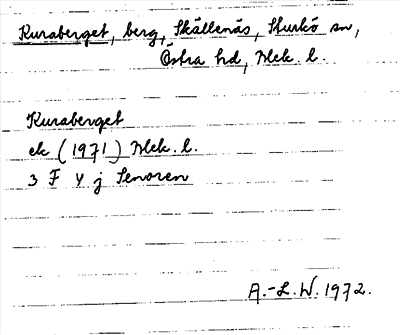 Kuraberget, berg, Skällenäs, Sturkö sn,
Östra hd, Blek. l.
Kuraberget
ek (1971) Blek. l.
3 F 4 j Senoren
A.-L.W. 1972.